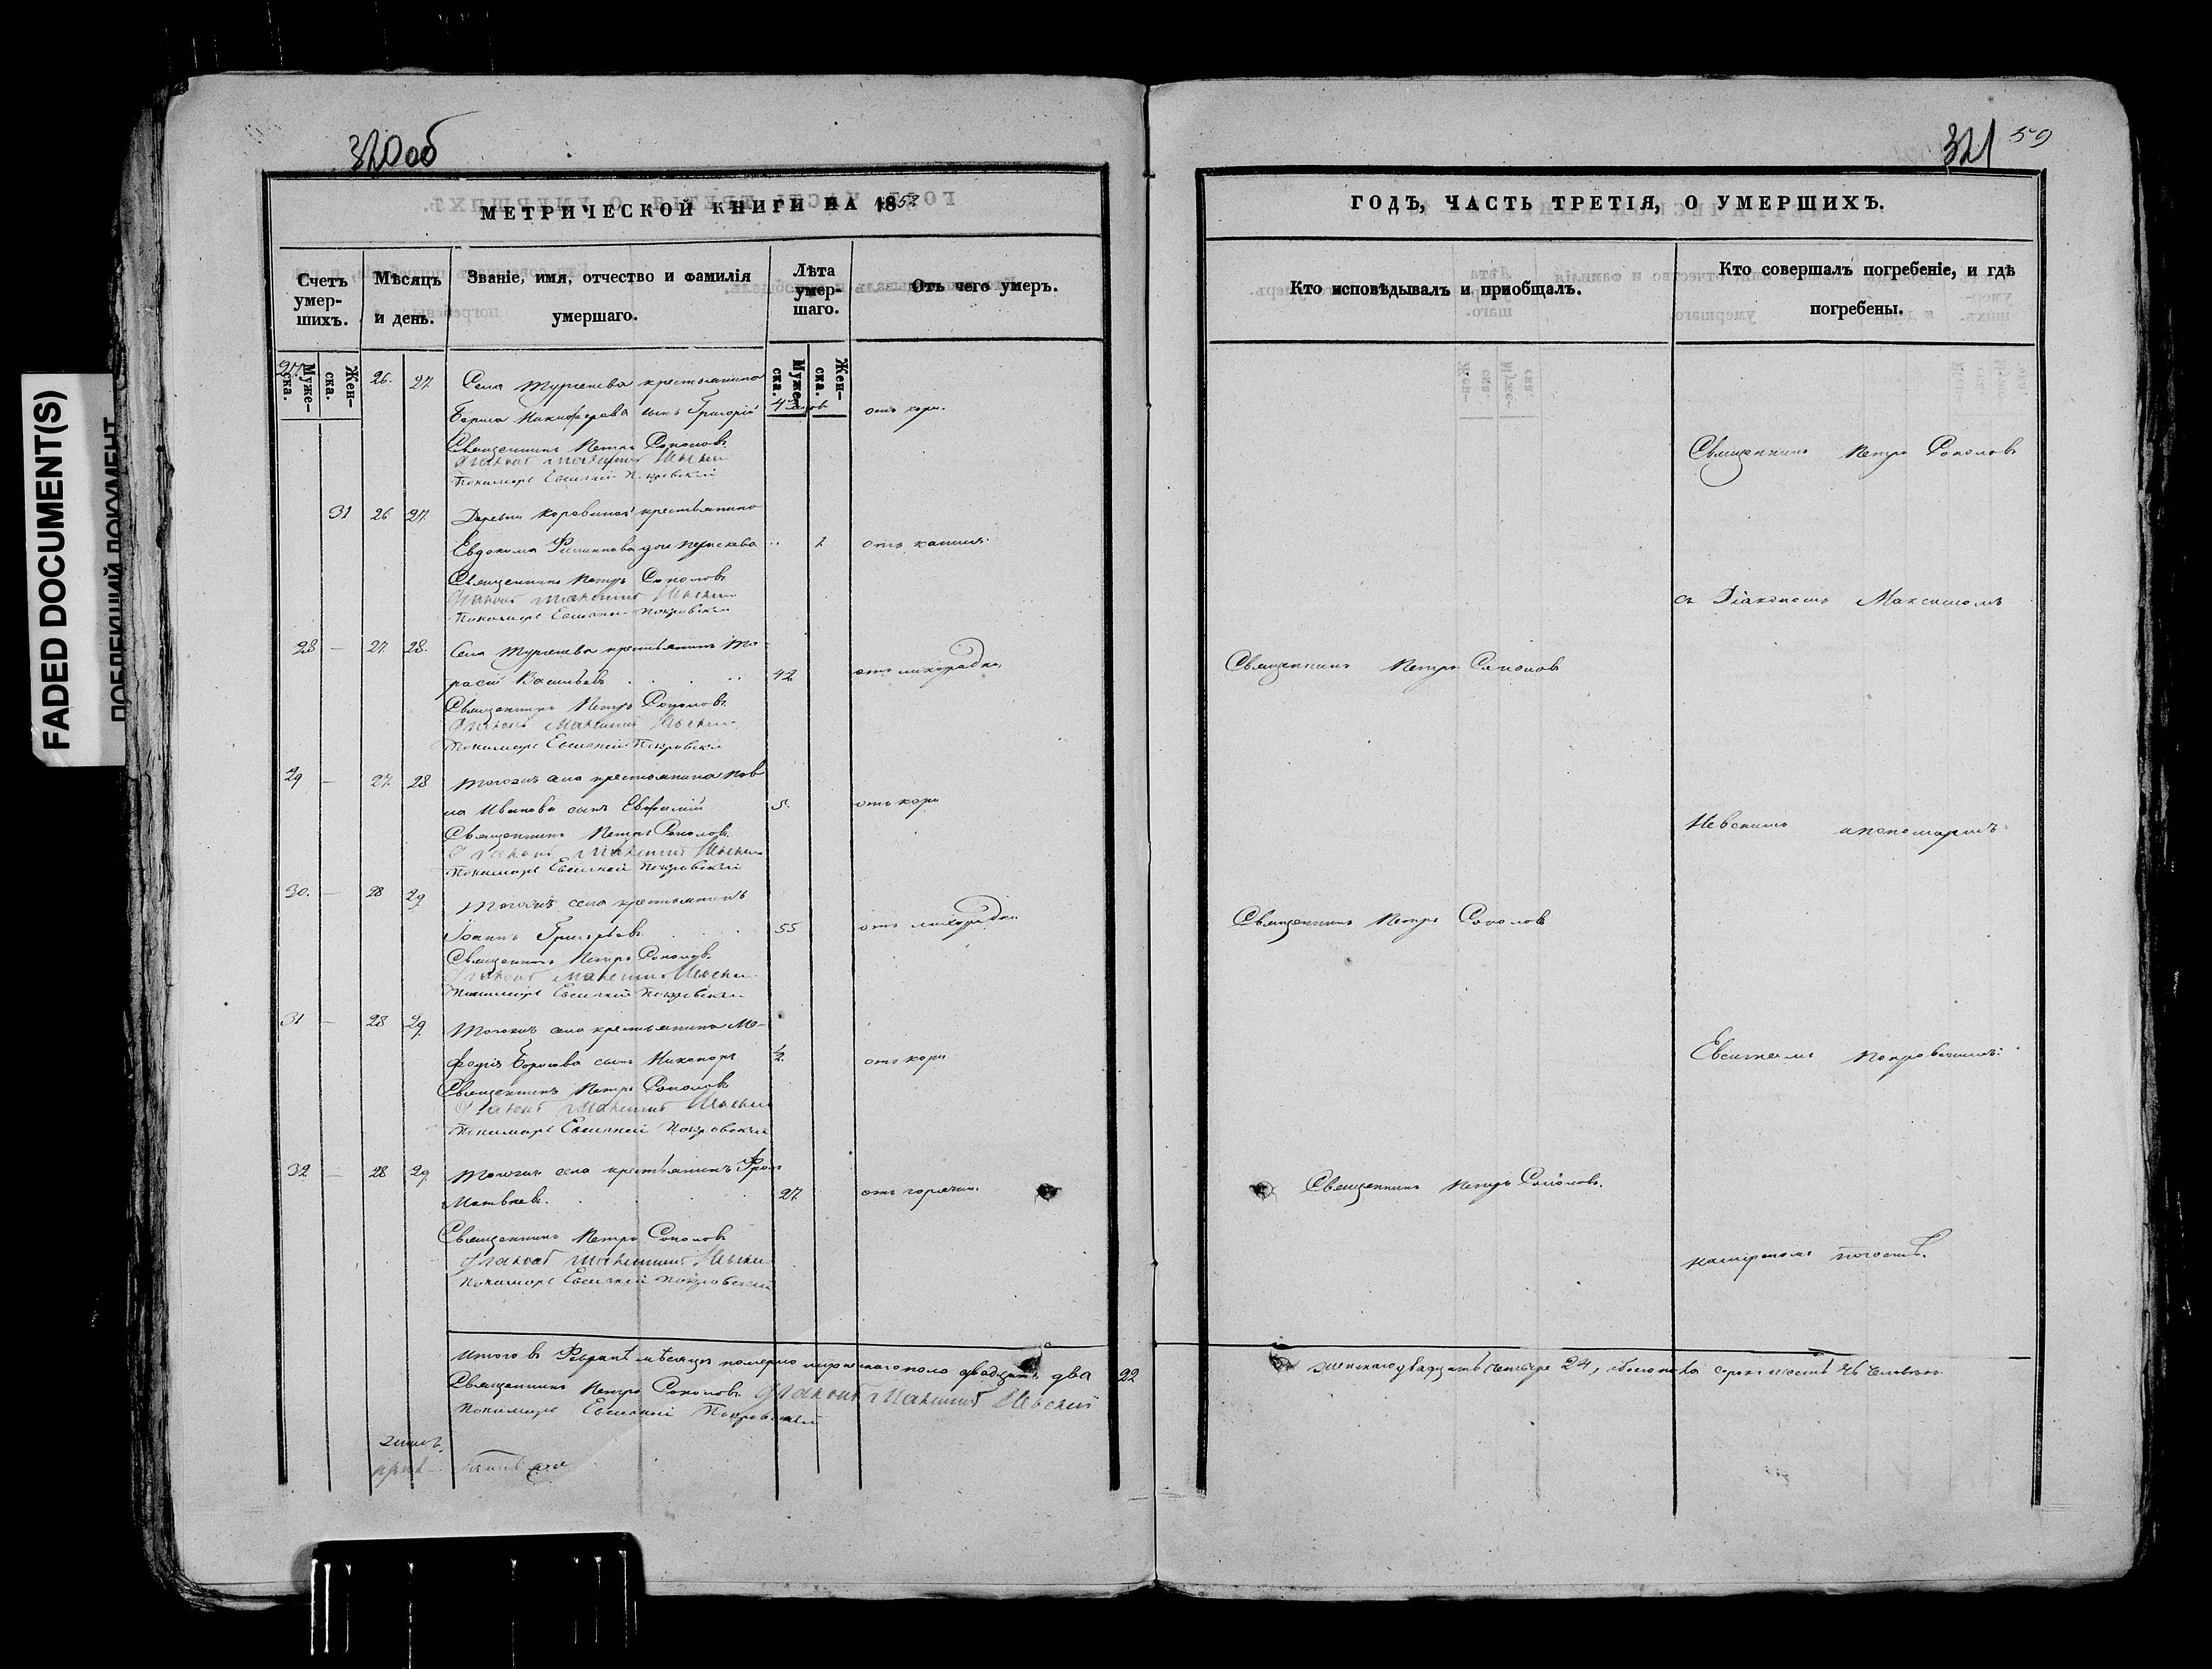 FADED DOCUMENT(S)
320об
МЕТРИЧЕСКОЙ КНИГИ НА 1852
Счетъ умер- шихъ.
Мѣсяцъ и день.
Званіе, имя, отчество и фамилія умершаго.
Лѣта умер- шаго.
Отъ чего умеръ.
Муже- ска.
Жен- ска.
Муже- ска.
Жен- ска.
27. 26. 27. Села Тургенева крестьянина
Бориса Никифорова сынъ Григорій от кори.
Священникъ Петръ Соколовъ
Діаконъ Максимъ Невскій
Пономарь Евсигней Покровскій
31 26 27. Деревни Коровиной крестьянина
Евдокима Филиппова дочь Параскева 1 отъ кашля.
Священникъ Петръ Соколовъ
Діаконъ Максимъ Невскій
Пономарь Евсигней Покровскій
28 — 27. 28. Села Тургенева крестьянинъ Та-
расій Васильевъ 42 отъ лихорадки
Священникъ Петръ Соколовъ
Діаконъ Максимъ Невскій
Пономарь Евсигней Покровскій
29 — 27. 28 Тогожъ села крестьянина Пав
ла Иванова сынъ Евфимій 5. отъ кори
Священникъ Петръ Соколовъ
Діаконъ Максимъ Невскій
Пономарь Евсигней Покровскій
30. — 28 29 Тогожъ села крестьянинъ
Іоаннъ Григорьевъ 55 отъ лихорадки
Священникъ Петръ Соколовъ
Діаконъ Максимъ Невскій
Пономарь Евсигней Покровскій
31 — 28 29 Тогожъ села крестьянина Ме-
фодія Борисова сынъ Никаноръ 1/2 отъ кори
Священникъ Петръ Соколовъ
Діаконъ Максимъ Невскій
Пономарь Евсигней Покровскій
32 — 28 29. Тогожъ села крестьянинъ Фролъ
Матвѣевъ. 27. отъ горячки.
Священникъ Петръ Соколовъ
Діаконъ Максимъ Невскій
Пономарь Евсигней Покровскій
Итого въ Февралѣ мѣсяцѣ померло мужескаго пола двадцать два 22
Священникъ Петръ Соколовъ Діаконъ Максимъ Невскій
Пономарь Евсигней Покровскій
321 59
ГОДЪ, ЧАСТЬ ТРЕТІЯ, О УМЕРШИХЪ.
Кто исповѣдывалъ и пріобщалъ.
Кто совершалъ погребеніе, и гдѣ погребены.
Священникъ Петръ Соколовъ
съ Діакономъ Максимомъ
Священникъ Петръ Соколовъ
Невскимъ и пономаремъ
Священникъ Петръ Соколовъ
Евсигнеемъ Покровскимъ:
Священникъ Петръ Соколовъ.
погостѣ.
женскаго двадцать четыре 24, обоего пола сорокъ шесть 46 человѣкъ.